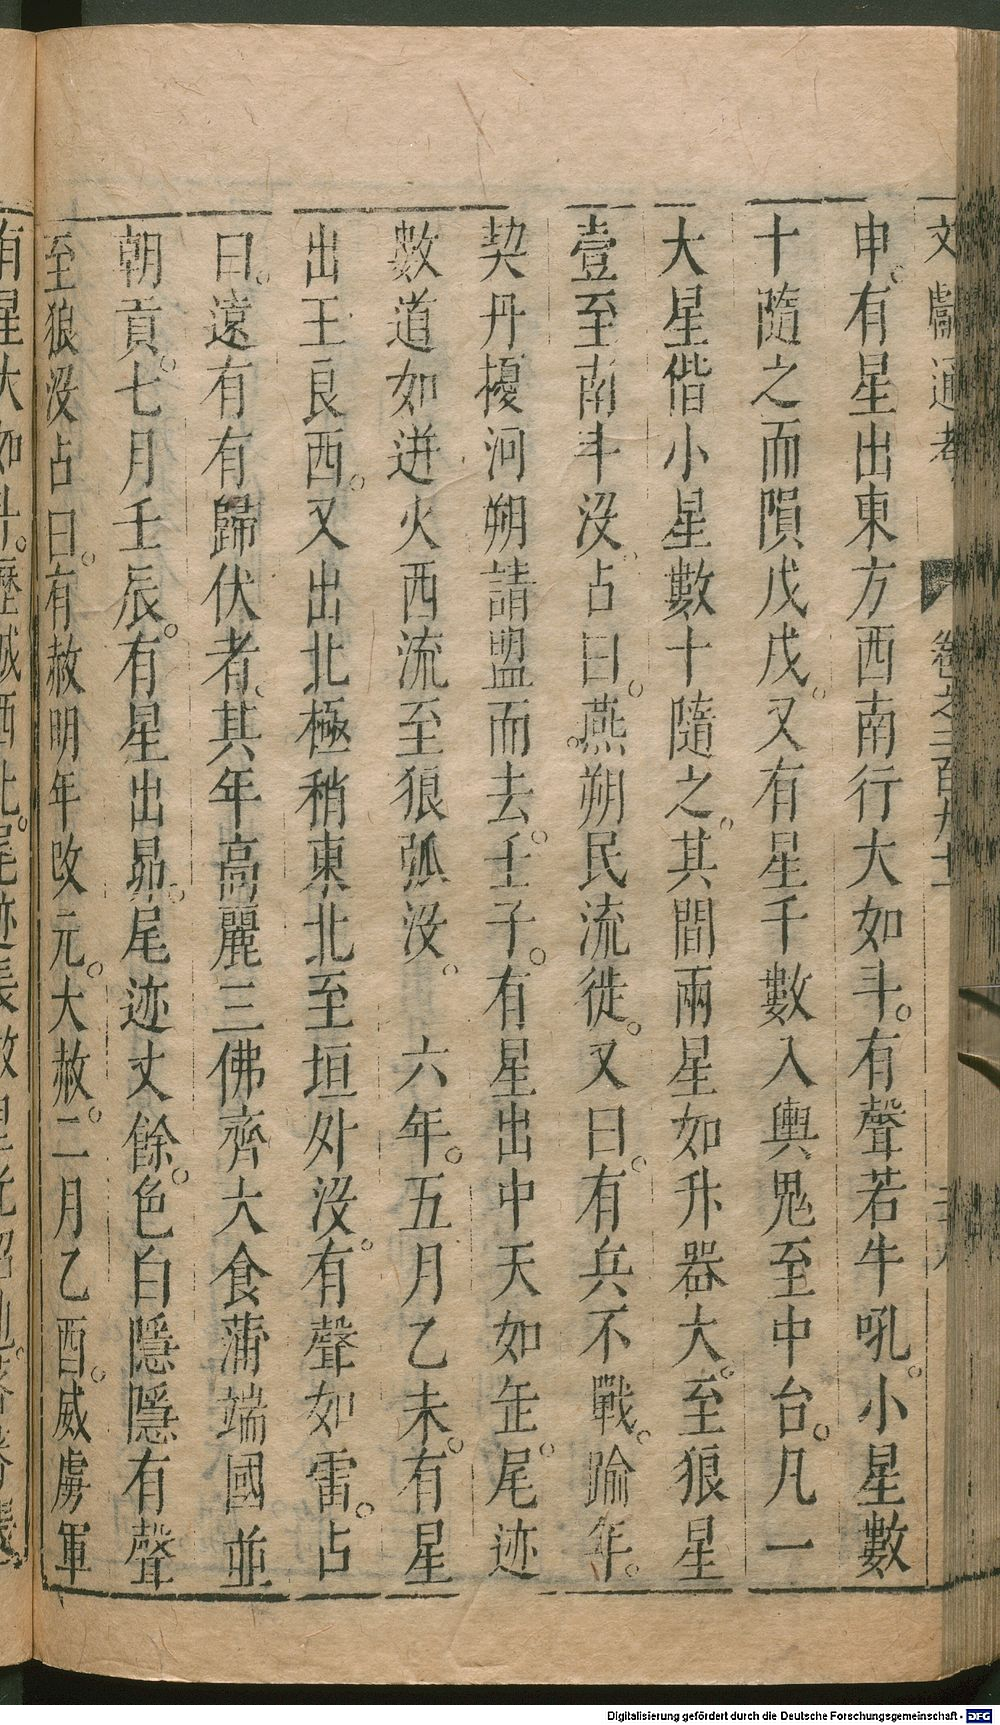 文獻通考 卷之二百九十一
申。有星出東方西南行大如斗。有聲若牛吼。小星數
十隨之而隕戊戌。又有星千數入輿鬼至中台。凡一
大星偕小星數十隨之。其間兩星如升器大。至狼星
壹至南斗没。占曰。燕。朔民流徙。又曰。有兵不戰。踰年。
契丹擾河朔請盟而去。壬子。有星出中天如缶。尾迹
數道如迸火西流至狼弧没。 六年。五月乙未。有星
出王良西。又出北極稍東北至垣外没。有聲如雷。占
曰。遠有有歸伏者。其年高麗三佛齊大食蒲端國並
朝貢。七月壬辰。有星出昴。尾迹丈餘。色白隱隱有聲
至狼没占曰。有赦明年改元。大赦。二月乙酉。威虜軍
有星大如斗。歷城西北。尾迹長數
Digitalisierung gefördert durch die Deutsche Forschungsgemeinschaft - DFG